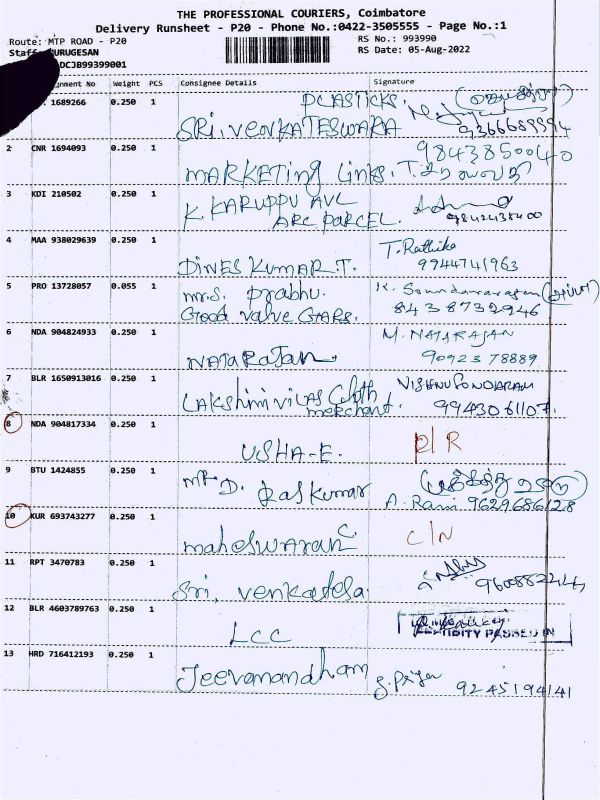 THE PROFESSIONAL COURIERS, Coimbatore
Delivery Runsheet - P20 - Phone No.:0422-3505555 - Page No.:1
Route: MTP ROAD - P20 RS No.: 993990
Staff: URUGESAN RS Date: 05-Aug-2022
DCJB99399001
gnment No Weight PCS Consignee Details Signature
1689266 0.250 1 PLASTICKS.
SRI. VENKATESWARA 9366689994
2 CNR 1694093 0.250 1 9843850040
MARKETing Links. T.
3 KDI 210502 0.250 1 K. KARUPPU AVL
ARC PARCEL. 9842438400
4 MAA 938029639 0.250 1 T. Rathika
DINES KUMAR.T. 9944741963
5 PRO 13728057 0.055 1 mr.S. Prabhu. K. Soundararajan (அப்பா)
Good valve GARS. 8438732946
6 NDA 904824933 0.250 1 M. NATARAJAN
NATARAJAN. 9092378889
7 BLR 1650913016 0.250 1 VISHNU SUNDARAM
LAKshmi viLAS Cloth merchant. 9943061107.
8 NDA 904817334 0.250 1 USHA-E. P/R
9 BTU 1424855 0.250 1
mr. D. Raskumar A. Rani 9629686128
10 KUR 693743277 0.250 1 maheswaran C. C/N
11 RPT 3470783 0.250 1
Sri. venkatesa
12 BLR 4603789763 0.250 1
LCC
13 HRD 716412193 0.250 1
Jeevanandham S. Priya 9245194141